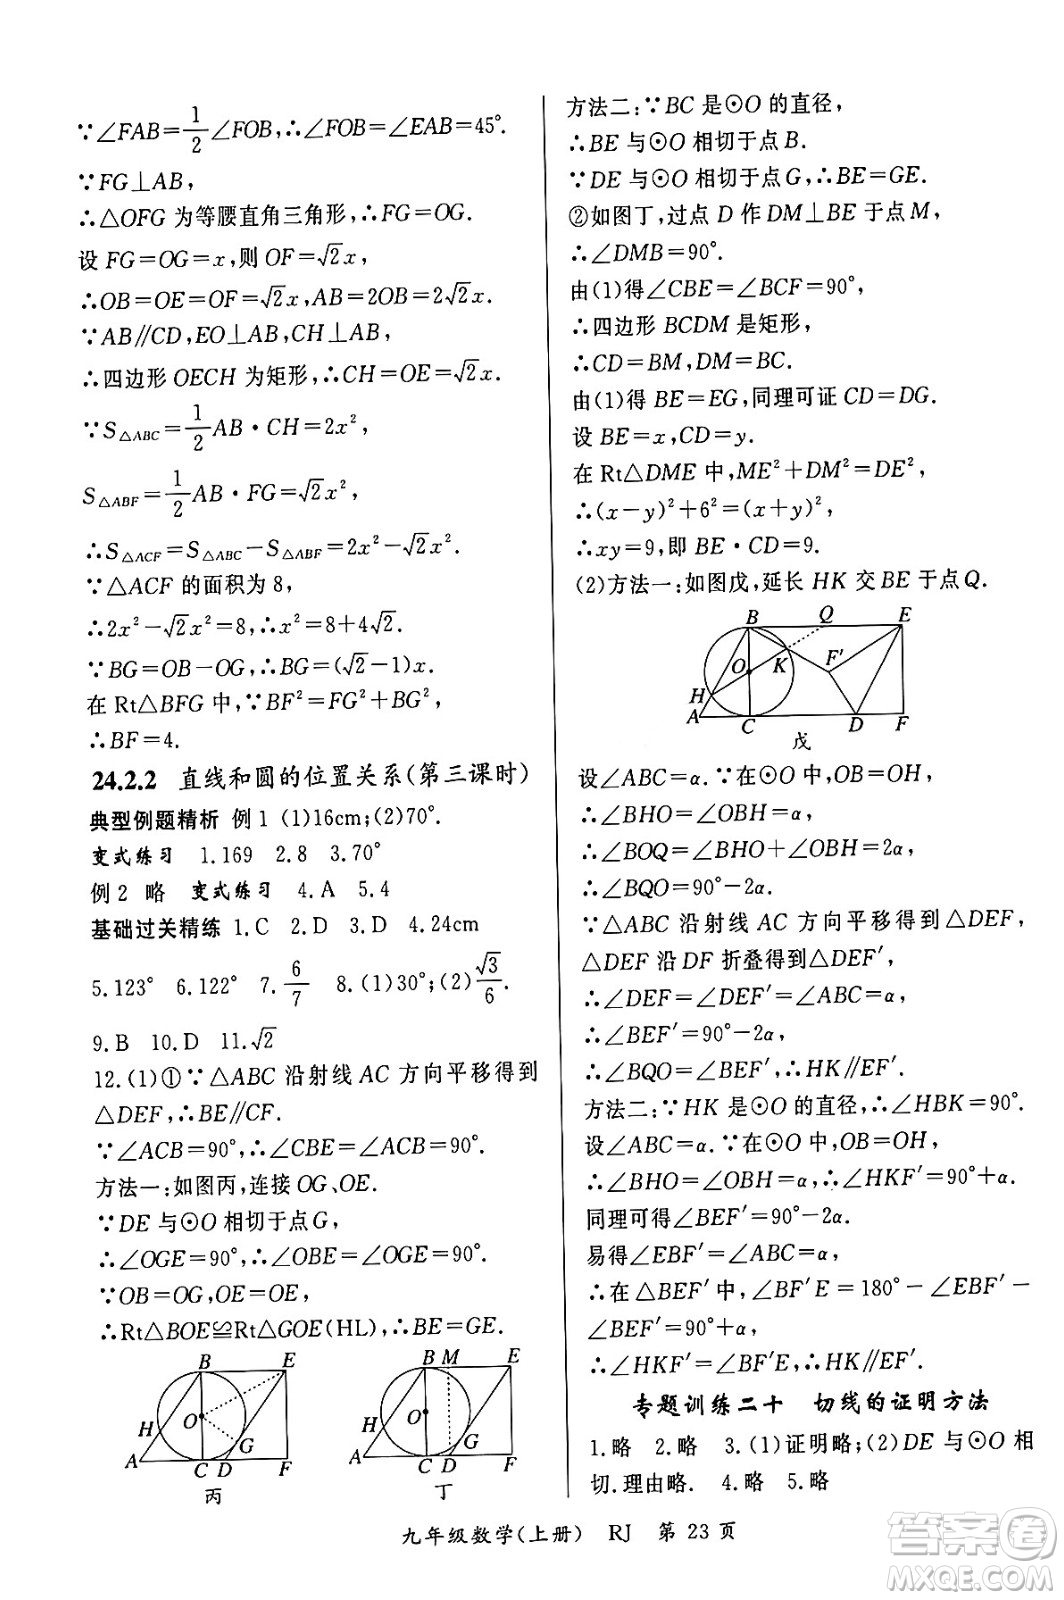 ∵∠FAB=1/2∠FOB,∴∠FOB=∠EAB=45°.
∵FG⊥AB,
∴△OFG 为等腰直角三角形,∴FG=OG.
设 FG=OG=x,则 OF=√2x,
∴OB=OE=OF=√2x,AB=2OB=2√2x.
∵AB∥CD,EO⊥AB,CH⊥AB,
∴四边形 OECH 为矩形,∴CH=OE=√2x.
∵S△ABC=1/2AB·CH=2x²,
S△ABF=1/2AB·FG=√2x²,
∴S△ACF=S△ABC−S△ABF=2x²−√2x².
∵△ACF 的面积为 8,
∴2x²−√2x²=8,∴x²=8+4√2.
∵BG=OB−OG,∴BG=(√2−1)x.
在 Rt△BFG 中,∵BF²=FG²+BG²,
∴BF=4.
24.2.2 直线和圆的位置关系(第三课时)
典型例题精析 例1 (1)16cm;(2)70°.
变式练习 1.169 2.8 3.70°
例2 略 变式练习 4.A 5.4
基础过关精练 1.C 2.D 3.D 4.24cm
5.123° 6.122° 7.6/7 8.(1)30°;(2)√3/6.
9.B 10.D 11.√2
12.(1)①∵△ABC 沿射线 AC 方向平移得到
△DEF,∴BE∥CF.
∵∠ACB=90°,∴∠CBE=∠ACB=90°.
方法一:如图丙,连接 OG、OE.
∵DE 与⊙O 相切于点 G,
∴∠OGE=90°,∴∠OBE=∠OGE=90°.
∵OB=OG,OE=OE,
∴Rt△BOE≌Rt△GOE(HL),∴BE=GE.
B E
H O
G
A C D F
丙
B M E
H O
G
A C D F
丁
方法二:∵BC 是⊙O 的直径,
∴BE 与⊙O 相切于点 B.
∵DE 与⊙O 相切于点 G,∴BE=GE.
②如图丁,过点 D 作 DM⊥BE 于点 M,
∴∠DMB=90°.
由(1)得∠CBE=∠BCF=90°,
∴四边形 BCDM 是矩形,
∴CD=BM,DM=BC.
由(1)得 BE=EG,同理可证 CD=DG.
设 BE=x,CD=y.
在 Rt△DME 中,ME²+DM²=DE²,
∴(x−y)²+6²=(x+y)²,
∴xy=9,即 BE·CD=9.
(2)方法一:如图戊,延长 HK 交 BE 于点 Q.
B Q E
O K F′
H
A C D F
戊
设∠ABC=α.∵在⊙O 中,OB=OH,
∴∠BHO=∠OBH=α,
∴∠BOQ=∠BHO+∠OBH=2α,
∴∠BQO=90°−2α.
∵△ABC 沿射线 AC 方向平移得到△DEF,
△DEF 沿 DF 折叠得到△DEF′,
∴∠DEF=∠DEF′=∠ABC=α,
∴∠BEF′=90°−2α,
∴∠BQO=∠BEF′,∴HK∥EF′.
方法二:∵HK 是⊙O 的直径,∴∠HBK=90°.
设∠ABC=α.∵在⊙O 中,OB=OH,
∴∠BHO=∠OBH=α,∴∠HKF′=90°+α.
同理可得∠BEF′=90°−2α.
易得∠EBF′=∠ABC=α,
∴在△BEF′中,∠BF′E=180°−∠EBF′−
∠BEF′=90°+α,
∴∠HKF′=∠BF′E,∴HK∥EF′.
专题训练二十 切线的证明方法
1.略 2.略 3.(1)证明略;(2)DE 与⊙O 相
切.理由略. 4.略 5.略
九年级数学(上册) RJ 第 23 页
答案圈
MXQE.COM